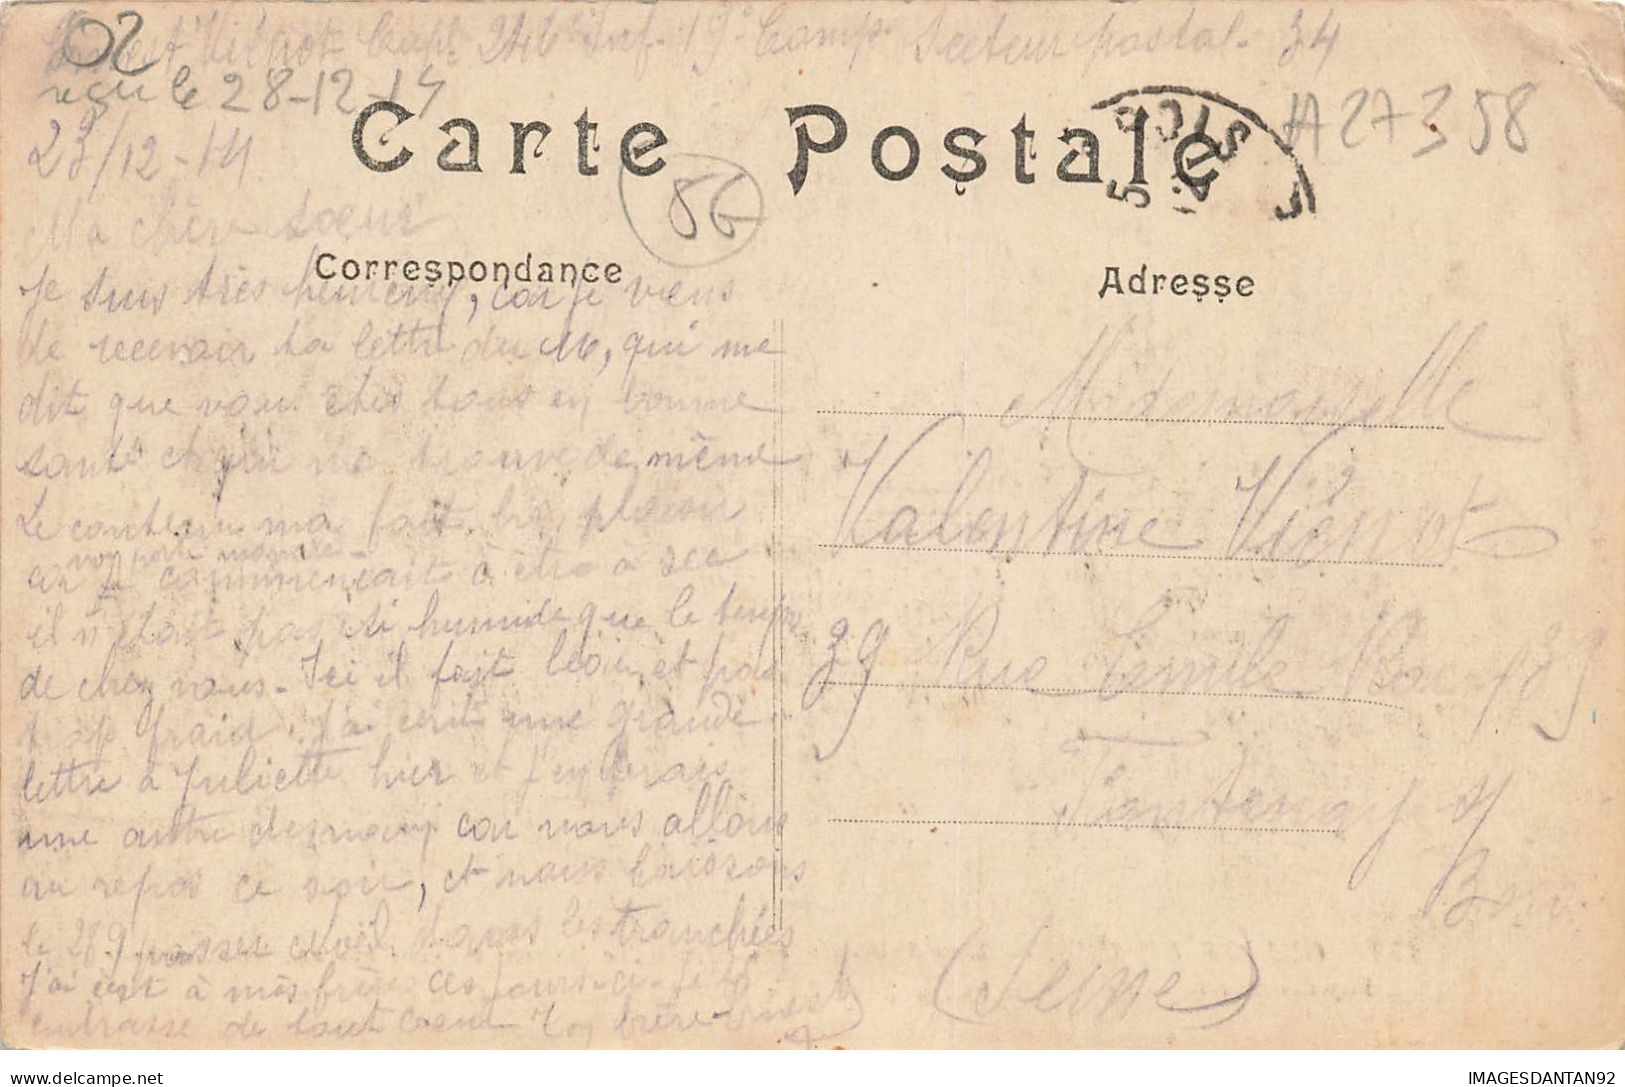 Ernest Viénot Capl 246e Inf. 19e Comp. Secteur postal. 34
02
reçu le 28-12-14
A27358
Carte Postale
23/12-14
86
Ma chère soeur
Correspondance
Adresse
Je suis très heureux, car je viens
de recevoir ta lettre du 16, qui me
dit que vous êtes tous en bonne
santé et qui me trouve de même
Le contenu m'a fait bien plaisir
mon porte monnaie
car il commençait à être à sec
il n'était pas si humide que le temps
de chez vous. Ici il fait beau et pas
trop froid. J'ai écrit une grande
lettre à Juliette hier et j'en ferais
une autre demain car nous allons
au repos ce soir, et nous laissons
le 289 passer Noël dans les tranchées
J'ai écrit à mes frères ces jours-ci. Je t'
embrasse de tout coeur Ton frère Ernest
Mademoiselle
Valentine Viénot
39 Rue Emile 39
Fontenay s/
Bois
(Seine)
IMAGESDANTAN92